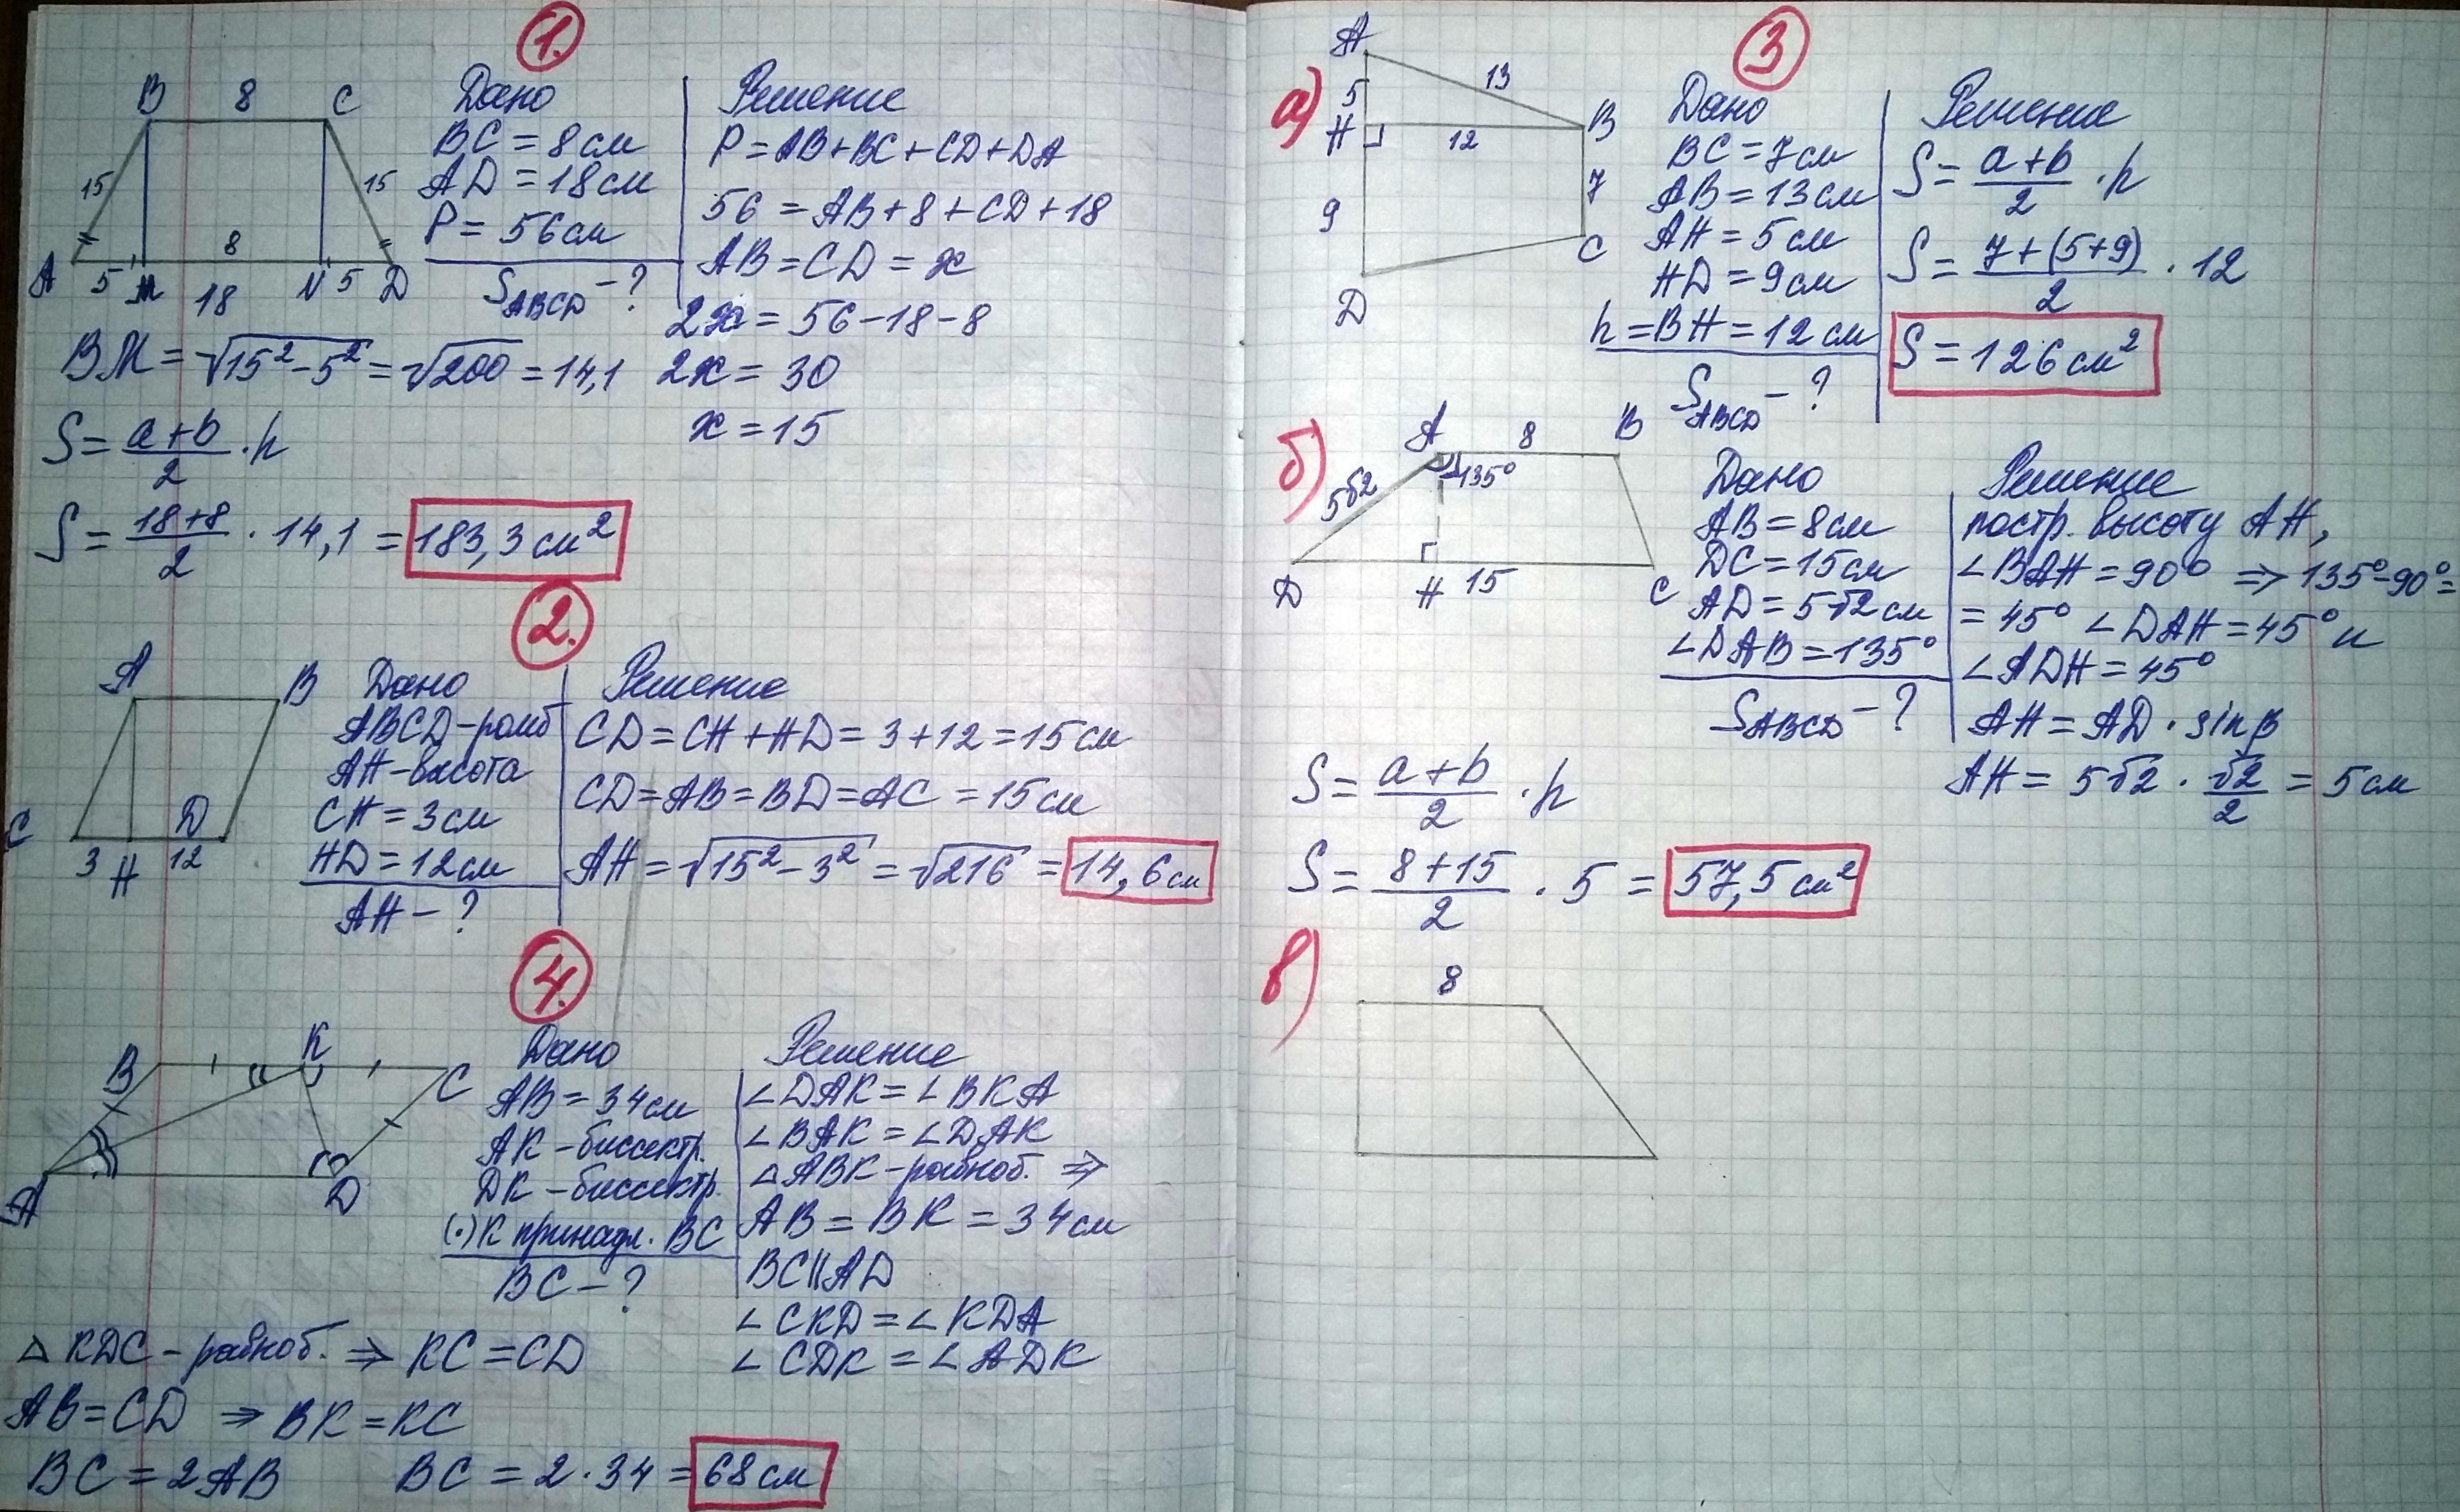 1.
B 8 C
15 15
8
A 5 M 18 N 5 D
Дано
BC = 8 см
AD = 18 см
P = 56 см
S_ABCD - ?
Решение
P = AB + BC + CD + DA
56 = AB + 8 + CD + 18
AB = CD = x
2x = 56 - 18 - 8
2x = 30
x = 15
BM = √(15² - 5²) = √200 = 14,1
S = (a + b)/2 · h
S = (18 + 8)/2 · 14,1 = 183,3 см²
2.
A B
C D
3 H 12
Дано
ABCD - ромб
AH - высота
CH = 3 см
HD = 12 см
AH - ?
Решение
CD = CH + HD = 3 + 12 = 15 см
CD = AB = BD = AC = 15 см
AH = √(15² - 3²) = √216 = 14,6 см
4.
B K C
A D
Дано
AB = 34 см
AK - биссектр.
DK - биссектр.
(·) K принадл. BC
BC - ?
Решение
∠DAK = ∠BKA
∠BAK = ∠DAK
△ABK - равноб. ⇒
AB = BK = 34 см
BC || AD
∠CKD = ∠KDA
∠CDK = ∠ADK
△KDC - равноб. ⇒ KC = CD
AB = CD ⇒ BK = KC
BC = 2AB BC = 2 · 34 = 68 см
3
а)
A
5 13
H 12 B
9 7
C
D
Дано
BC = 7 см
AB = 13 см
AH = 5 см
HD = 9 см
h = BH = 12 см
S_ABCD - ?
Решение
S = (a + b)/2 · h
S = (7 + (5 + 9))/2 · 12
S = 126 см²
б)
A 8 B
5√2 135°
D H 15 C
Дано
AB = 8 см
DC = 15 см
AD = 5√2 см
∠DAB = 135°
S_ABCD - ?
Решение
постр. высоту AH,
∠BAH = 90° ⇒ 135° - 90° =
= 45° ∠DAH = 45° и
∠ADH = 45°
AH = AD · sin β
AH = 5√2 · √2/2 = 5 см
S = (a + b)/2 · h
S = (8 + 15)/2 · 5 = 57,5 см²
в)
8